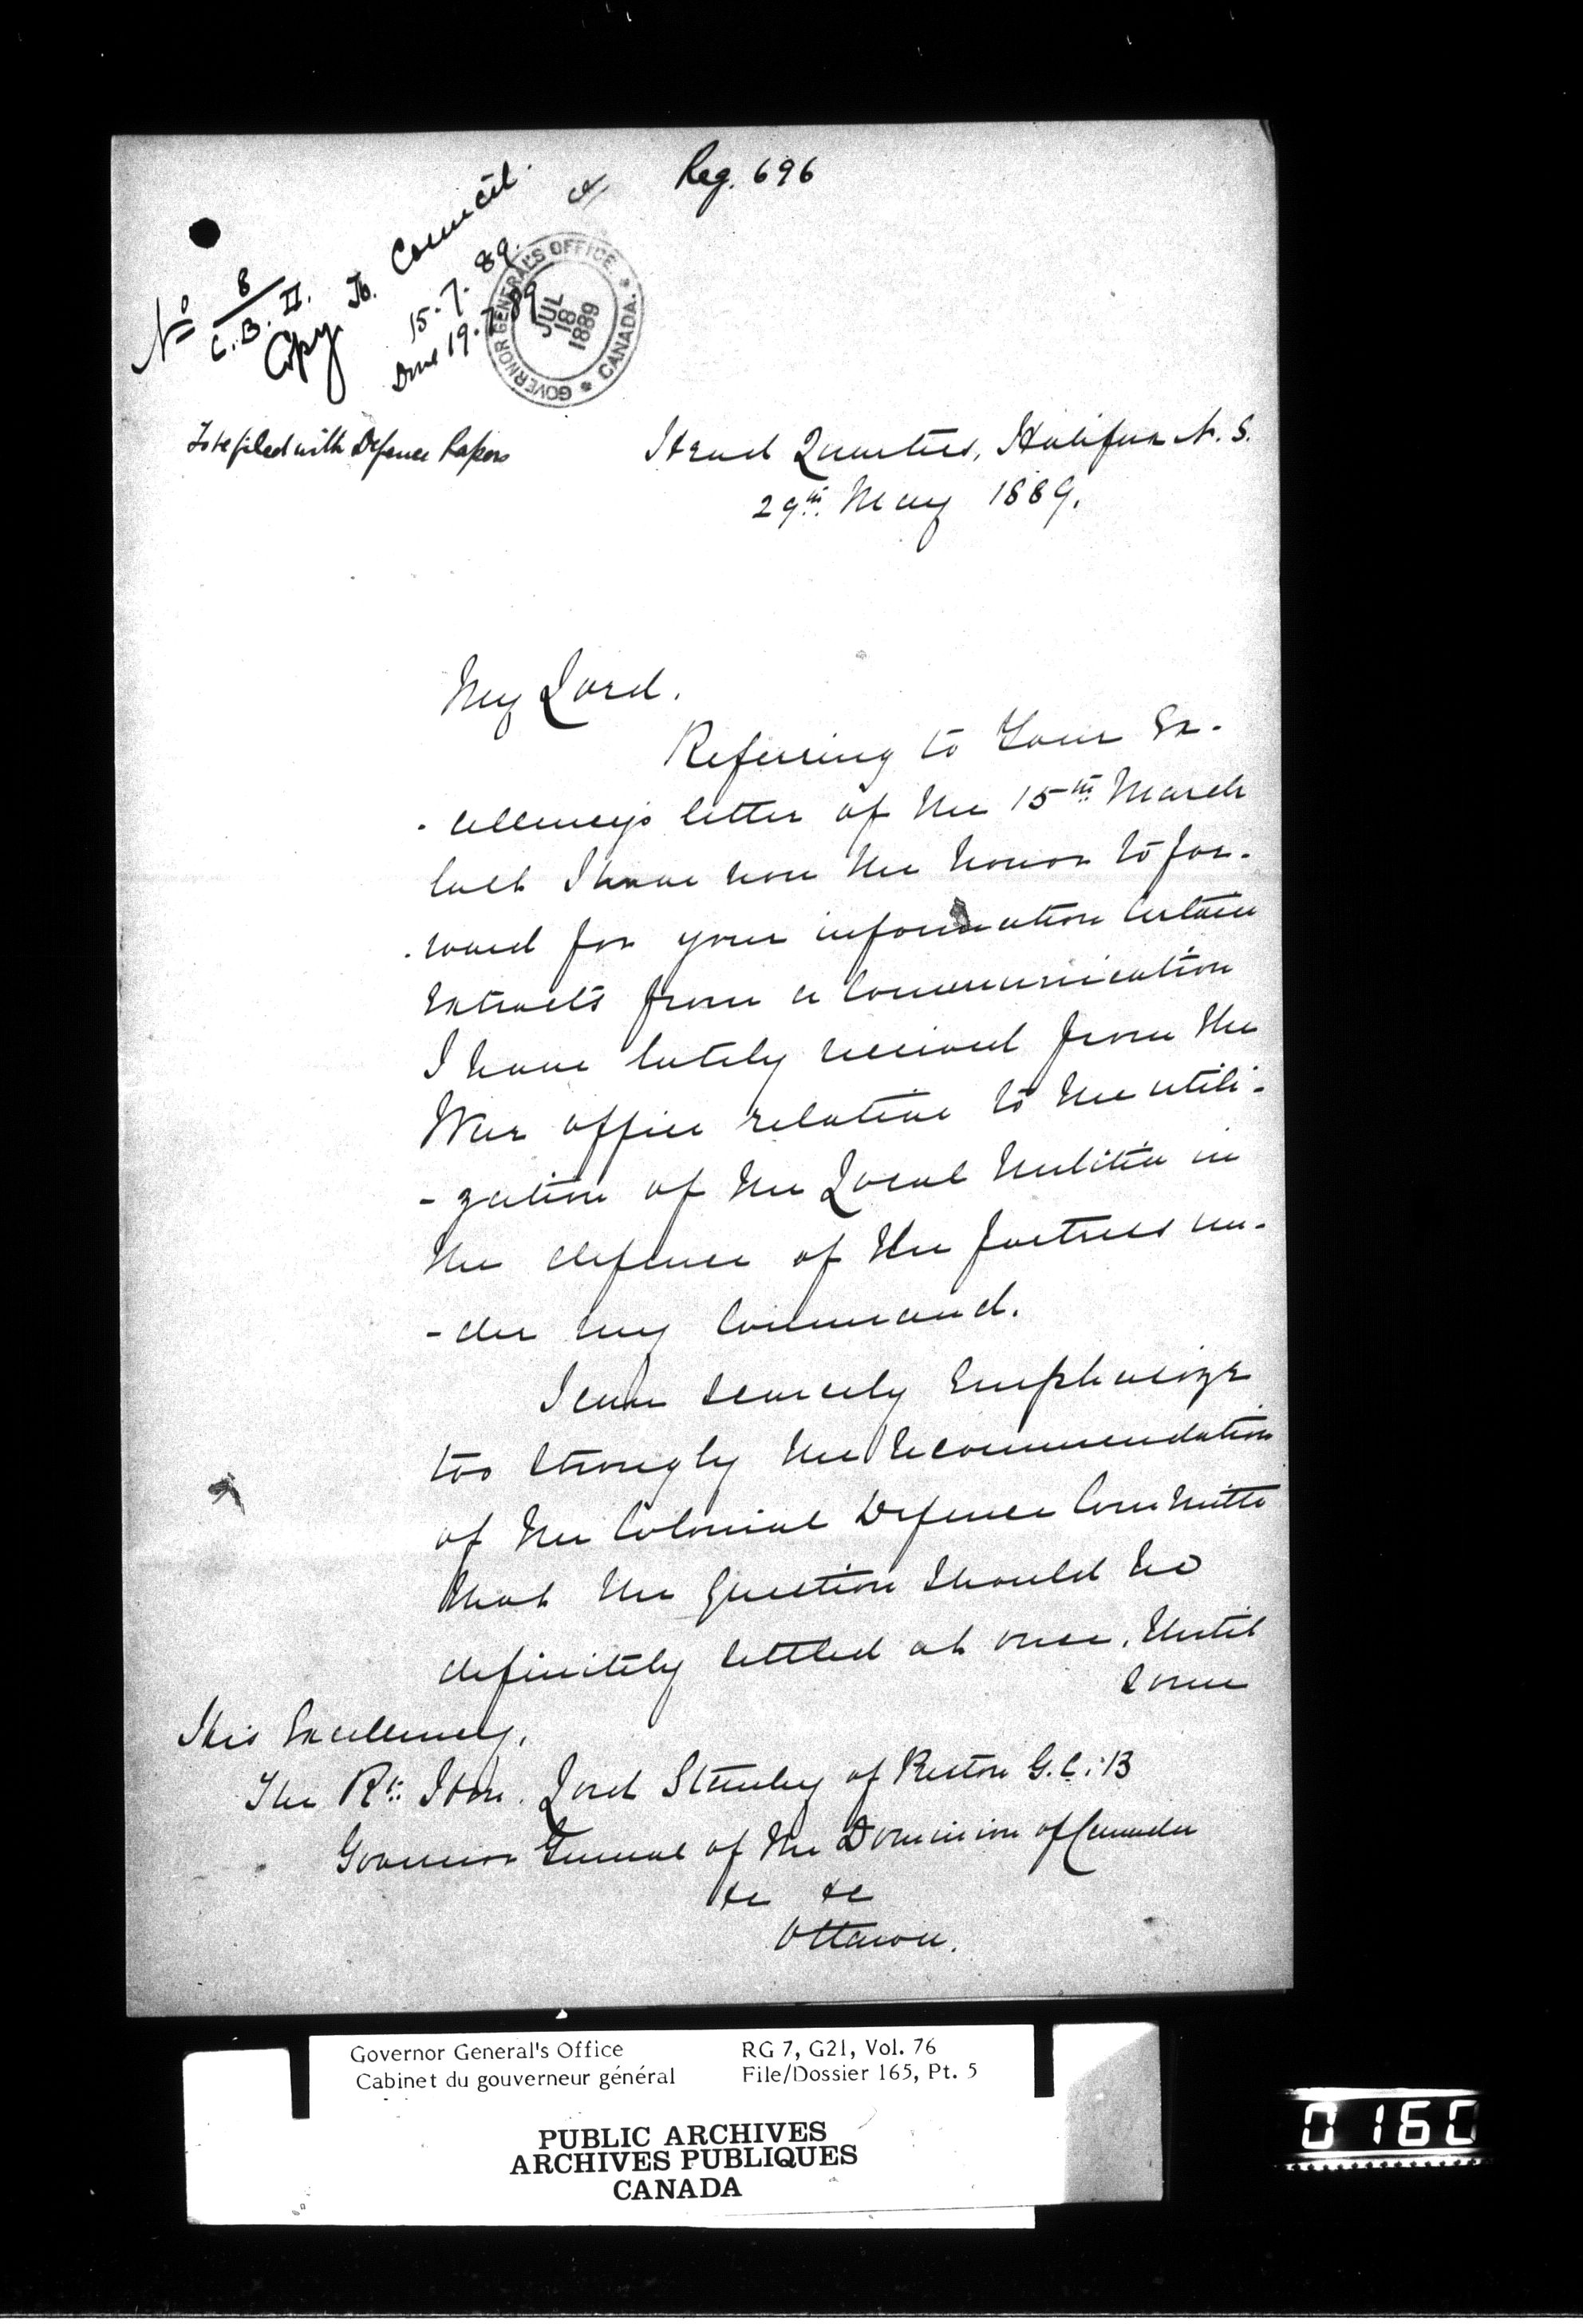 Reg. 696
No 8
C.B. II.
Copy to Council.
15.7.89.
Done 19.7.89
GOVERNOR GENERAL'S OFFICE. * CANADA. *
JUL
18
1889
To be filed with Defence Papers
Head Quarters, Halifax N. S.
29th May 1889.
My Lord.
Referring to Your Ex-
-cellency's letter of the 15th March
last I have now the honor to for-
-ward for your information certain
extracts from a communication
I have lately received from the
War office relative to the utili-
-zation of the Local Militia in
the defence of the fortress un-
-der my Command.
I can scarcely emphasize
too strongly the recommendation
of the Colonial Defence Committe
that the question should be
definitely settled at once. Until
some
His Excellency.
The Rt: Hon. Lord Stanley of Preston G.C.B
Governor General of the Dominion of Canada
&c &c
Ottawa.
Governor General's Office
Cabinet du gouverneur général
RG 7, G21, Vol. 76
File/Dossier 165, Pt. 5
PUBLIC ARCHIVES
ARCHIVES PUBLIQUES
CANADA
0160